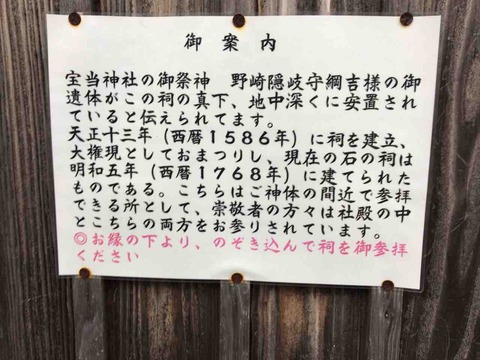 御案内
宝当神社の御祭神　野崎隠岐守綱吉様の御
遺体がこの祠の真下、地中深くに安置され
ていると伝えられてます。
天正十三年（西暦１５８６年）に祠を建立、
大権現としておまつりし、現在の石の祠は
明和五年（西暦１７６８年）に建てられた
ものである。こちらはご神体の間近で参拝
できる所として、崇敬者の方々は社殿の中
とこちらの両方をお参りされています。
◎お縁の下より、のぞき込んで祠を御参拝
ください